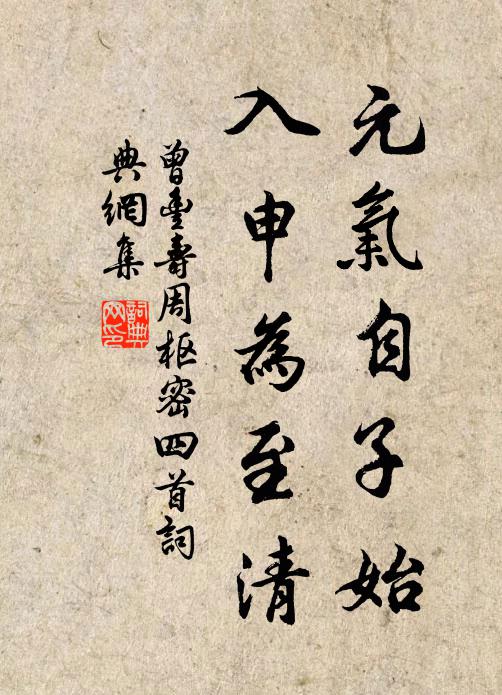 元氣自子始
入申為至清
曾豐壽周枢密四首詞
典網集
詞典网印